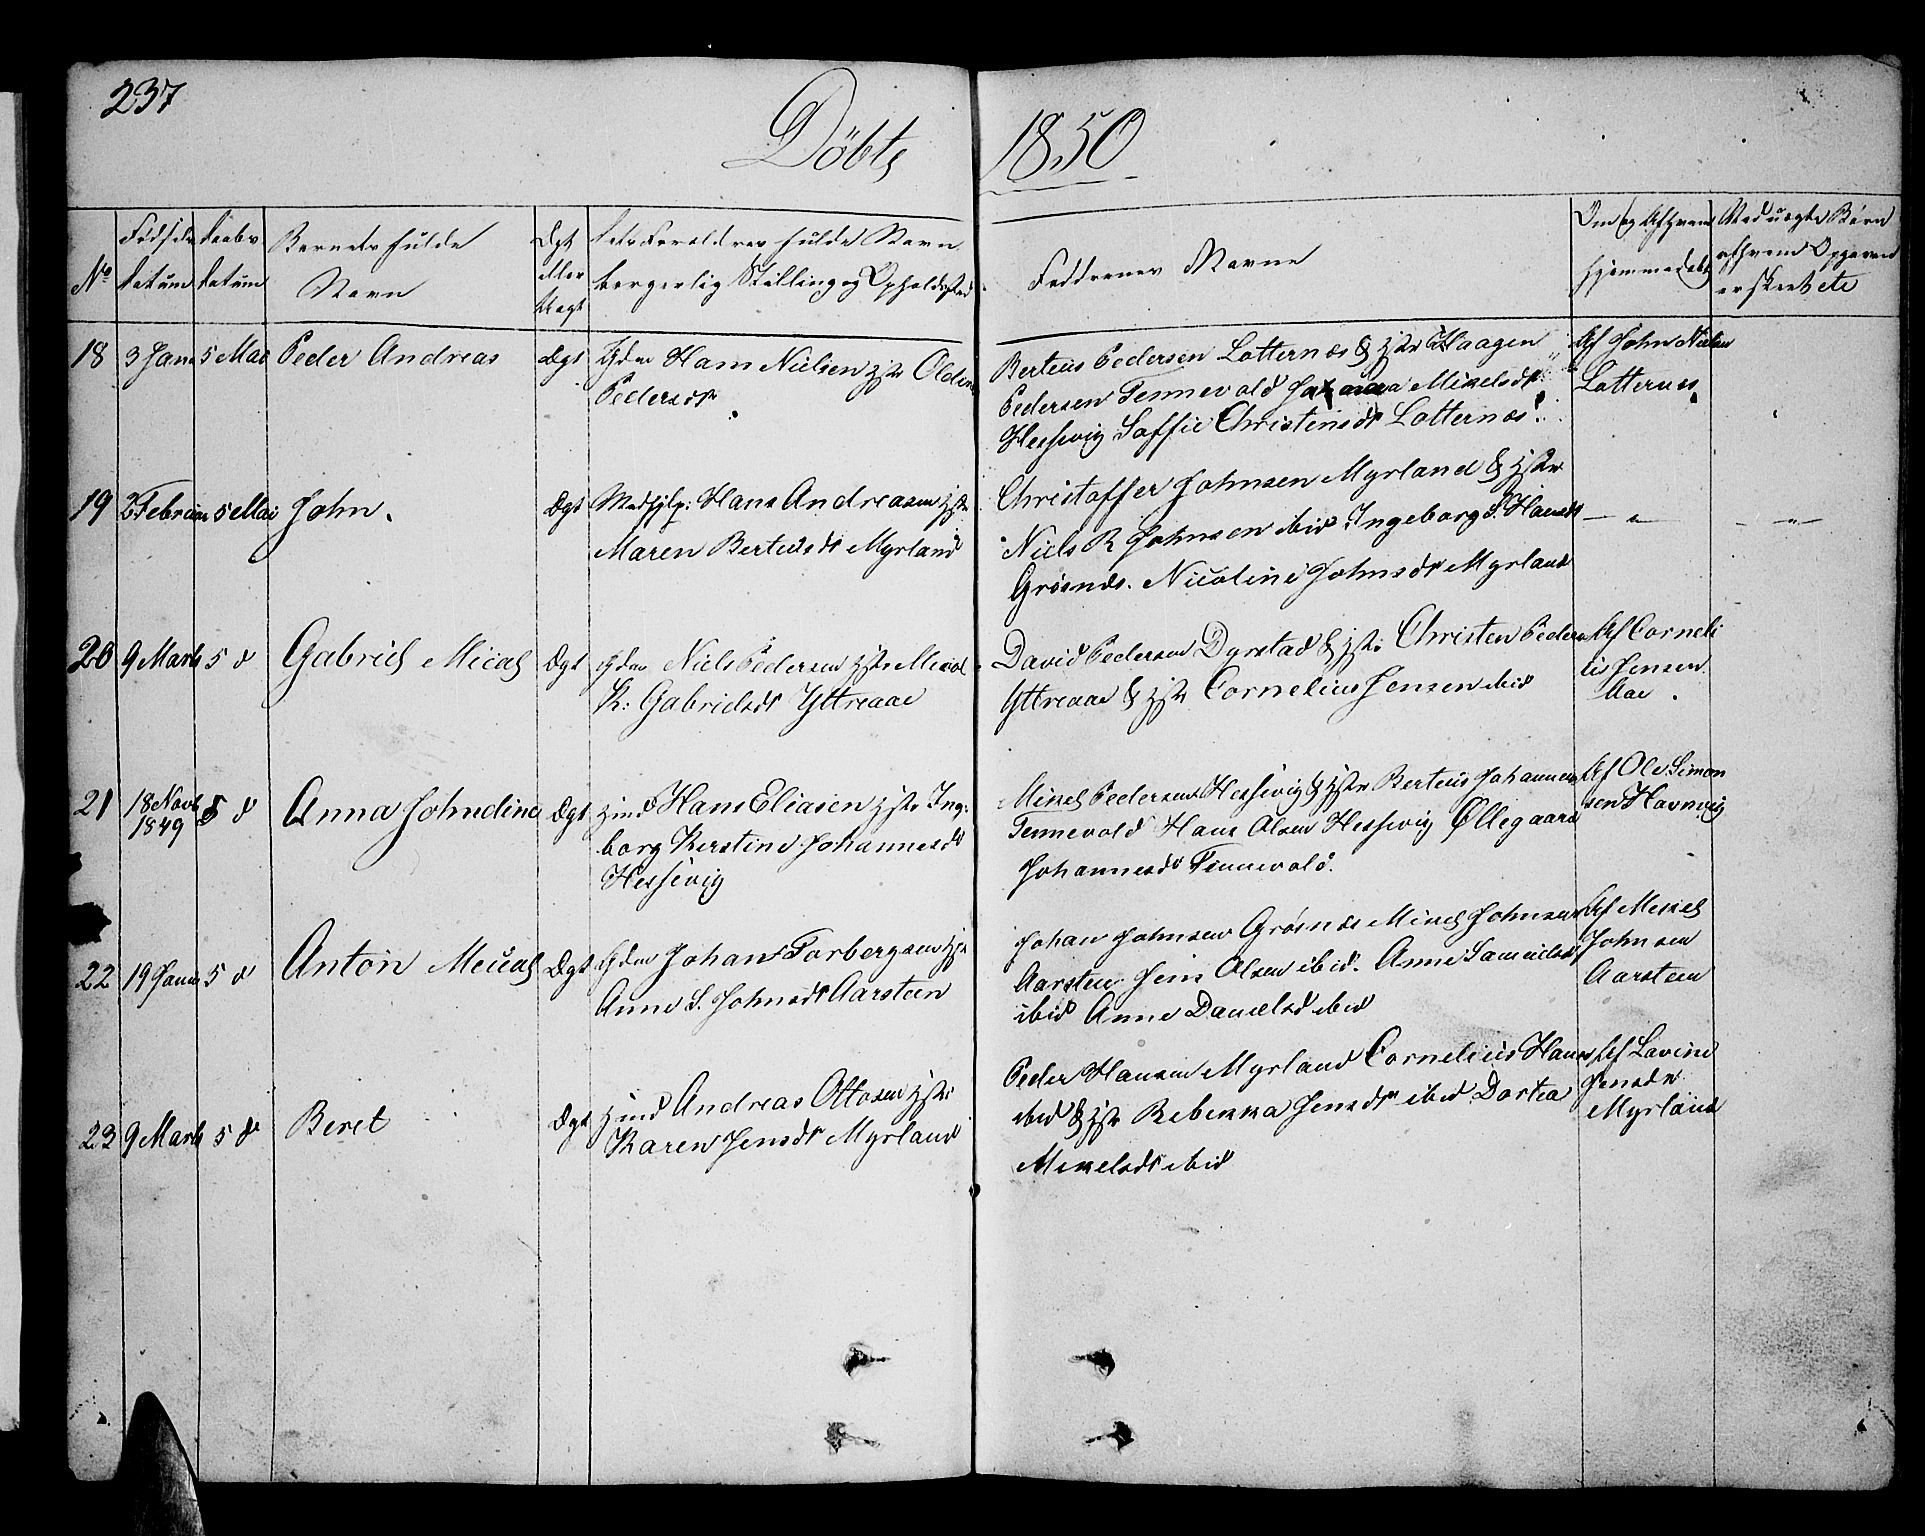 237
Döbte 1850
No
Fødsels datum
Daabs datum
Barnets fulde Navn
Ægt eller Uægt
Dets Forældres fulde Navn borgerlig Stilling og Opholdssted
Faddrenes Navne
Om og Af hvem hjemmedøbt
Ved uægte Børn af hvem Opgaven er skeet etc
18
3 Janr
5 Mai
Peder Andreas
Ægt
Gdm Hans Nielsen hstr Oldine
Pedersdr
Berteus Pedersen Lotternæs & hstr Haagen
Pedersen Tennevold Mikelsdr
Hesjevig Soffie Christensdr Lotternæs
Af John Nielsen
Lotternæs
19
2 Februar
5 Mai
John.
Ægt
Medhjlp: Hans Andreasen hstr
Maren Berteusdr Myrland
Christoffer Johnsen Myrland & hstr
Niels R Johnsen ibid Ingeborg S. Hansdr
Grøsnæs. Nicoline Johnsdr Myrland
— " —
— " —
20
9 Marts
5 d
Gabriel Micael
Ægt
Gdm Niels Pedersen hstr
K: Gabrielsdr Yttreaae
David Pedersen Dyrstad & hstr Christen Peders
Yttreaae & hstr Cornelius Jensen ibid
Af Corneli
us Jensen
Aae.
21
18 Novb
1849
5 d
Anna Johndine
Ægt
Hans Eliasen hstr Inge
borg Kerstine Johannesdr
Hesjevig
Mikel Pedersen Hesjevig & hstr Berteus Johannesen
Tennevold Hans Olsen Hesjevig Øllegaard
Johannesdr Tennevold.
Af Ole Simon
sen Havnvig
22
19 Janr
5 d
Anton Mecael
Ægt
Gdm Johan Torbergsen hstr
Anne S. Johnsdr Aarsteen
Johan Johnsen Grøsnæs Mikel Johnsen
Aarsteen Jens Olsen ibid. Anne Samuelsdr
ibid Anne Danielsd ibid
Af Mekel
Johnsen
Aarsteen
23
9 Marts
5 d
Beret
Ægt
Andreas Ottosen hstr
Karen Jensdr Myrland
Peder Hansen Myrland Cornelius Hans
ibid & hstr Rebekka Jensdr ibid Dortea
Mikelsdr ibid
Af Lavine
Jensdr
Myrland